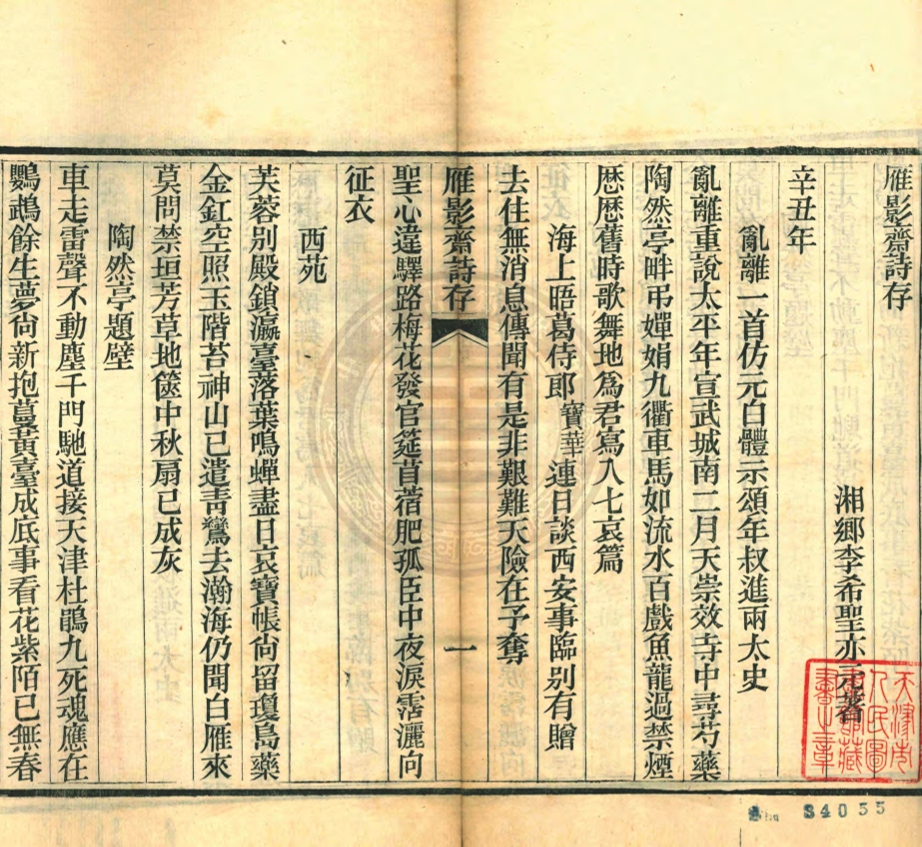 雁影齋詩存
湘鄉李希聖亦元著
辛丑年
亂離一首仿元白體示頌年叔進兩太史
亂離重說太平年宣武城南二月天崇效寺中尋芍藥
陶然亭畔弔嬋娟九衢車馬如流水百戲魚龍過禁煙
歷歷舊時歌舞地爲君寫入七哀篇
海上晤葛侍郎寶華連日談西安事臨別有贈
去住無消息傳聞有是非艱難天險在予奪
雁影齋詩存
一
聖心違驛路梅花發官筵苜蓿肥孤臣中夜淚霑灑向
征衣
西苑
芙蓉別殿鎖瀛臺落葉鳴蟬盡日哀寶帳尙留瓊島藥
金釭空照玉階苔神山已遣靑鸞去瀚海仍聞白雁來
莫問禁垣芳草地篋中秋扇已成灰
陶然亭題壁
車走雷聲不動塵千門馳道接天津杜鵑九死魂應在
鸚鵡餘生夢尙新抱蔓黃臺成底事看花紫陌已無春
天津市
人民圖
書館藏
書之章
34055